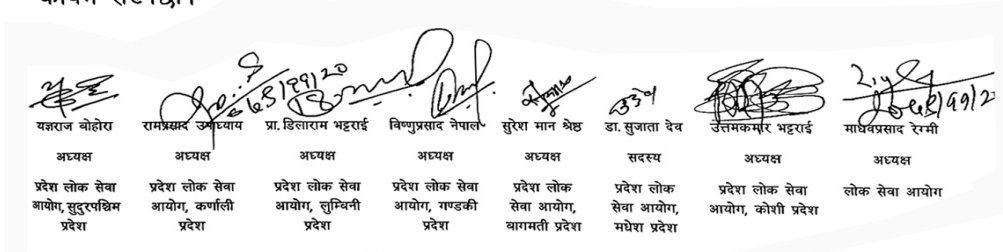 यज्ञराज बोहोरा
अध्यक्ष
प्रदेश लोक सेवा
आयोग, सुदुरपश्चिम
प्रदेश
रामप्रसाद उपाध्याय
अध्यक्ष
प्रदेश लोक सेवा
आयोग, कर्णाली
प्रदेश
प्रा. डिलाराम भट्टराई
अध्यक्ष
प्रदेश लोक सेवा
आयोग, लुम्बिनी
प्रदेश
विष्णुप्रसाद नेपाल
अध्यक्ष
प्रदेश लोक सेवा
आयोग, गण्डकी
प्रदेश
सुरेश मान श्रेष्ठ
अध्यक्ष
प्रदेश लोक
सेवा आयोग,
बागमती प्रदेश
डा. सुजाता देव
सदस्य
प्रदेश लोक
सेवा आयोग,
मधेश प्रदेश
उत्तमकुमार भट्टराई
अध्यक्ष
प्रदेश लोक सेवा
आयोग, कोशी प्रदेश
माधवप्रसाद रेग्मी
अध्यक्ष
लोक सेवा आयोग